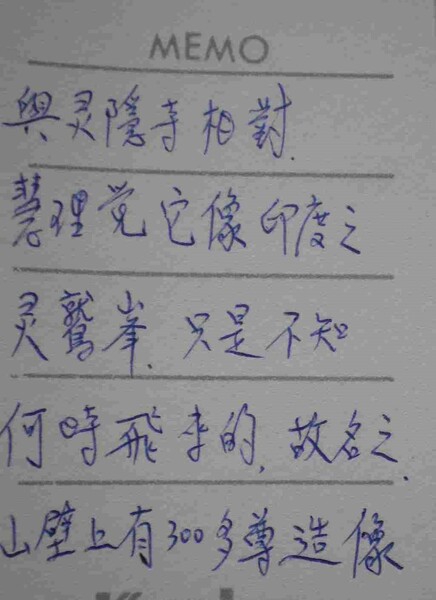 MEMO
與灵隱寺相對.
慧理觉它像印度之
灵鷲峯. 只是不知
何時飛来的, 故名之.
山壁上有300多尊造像